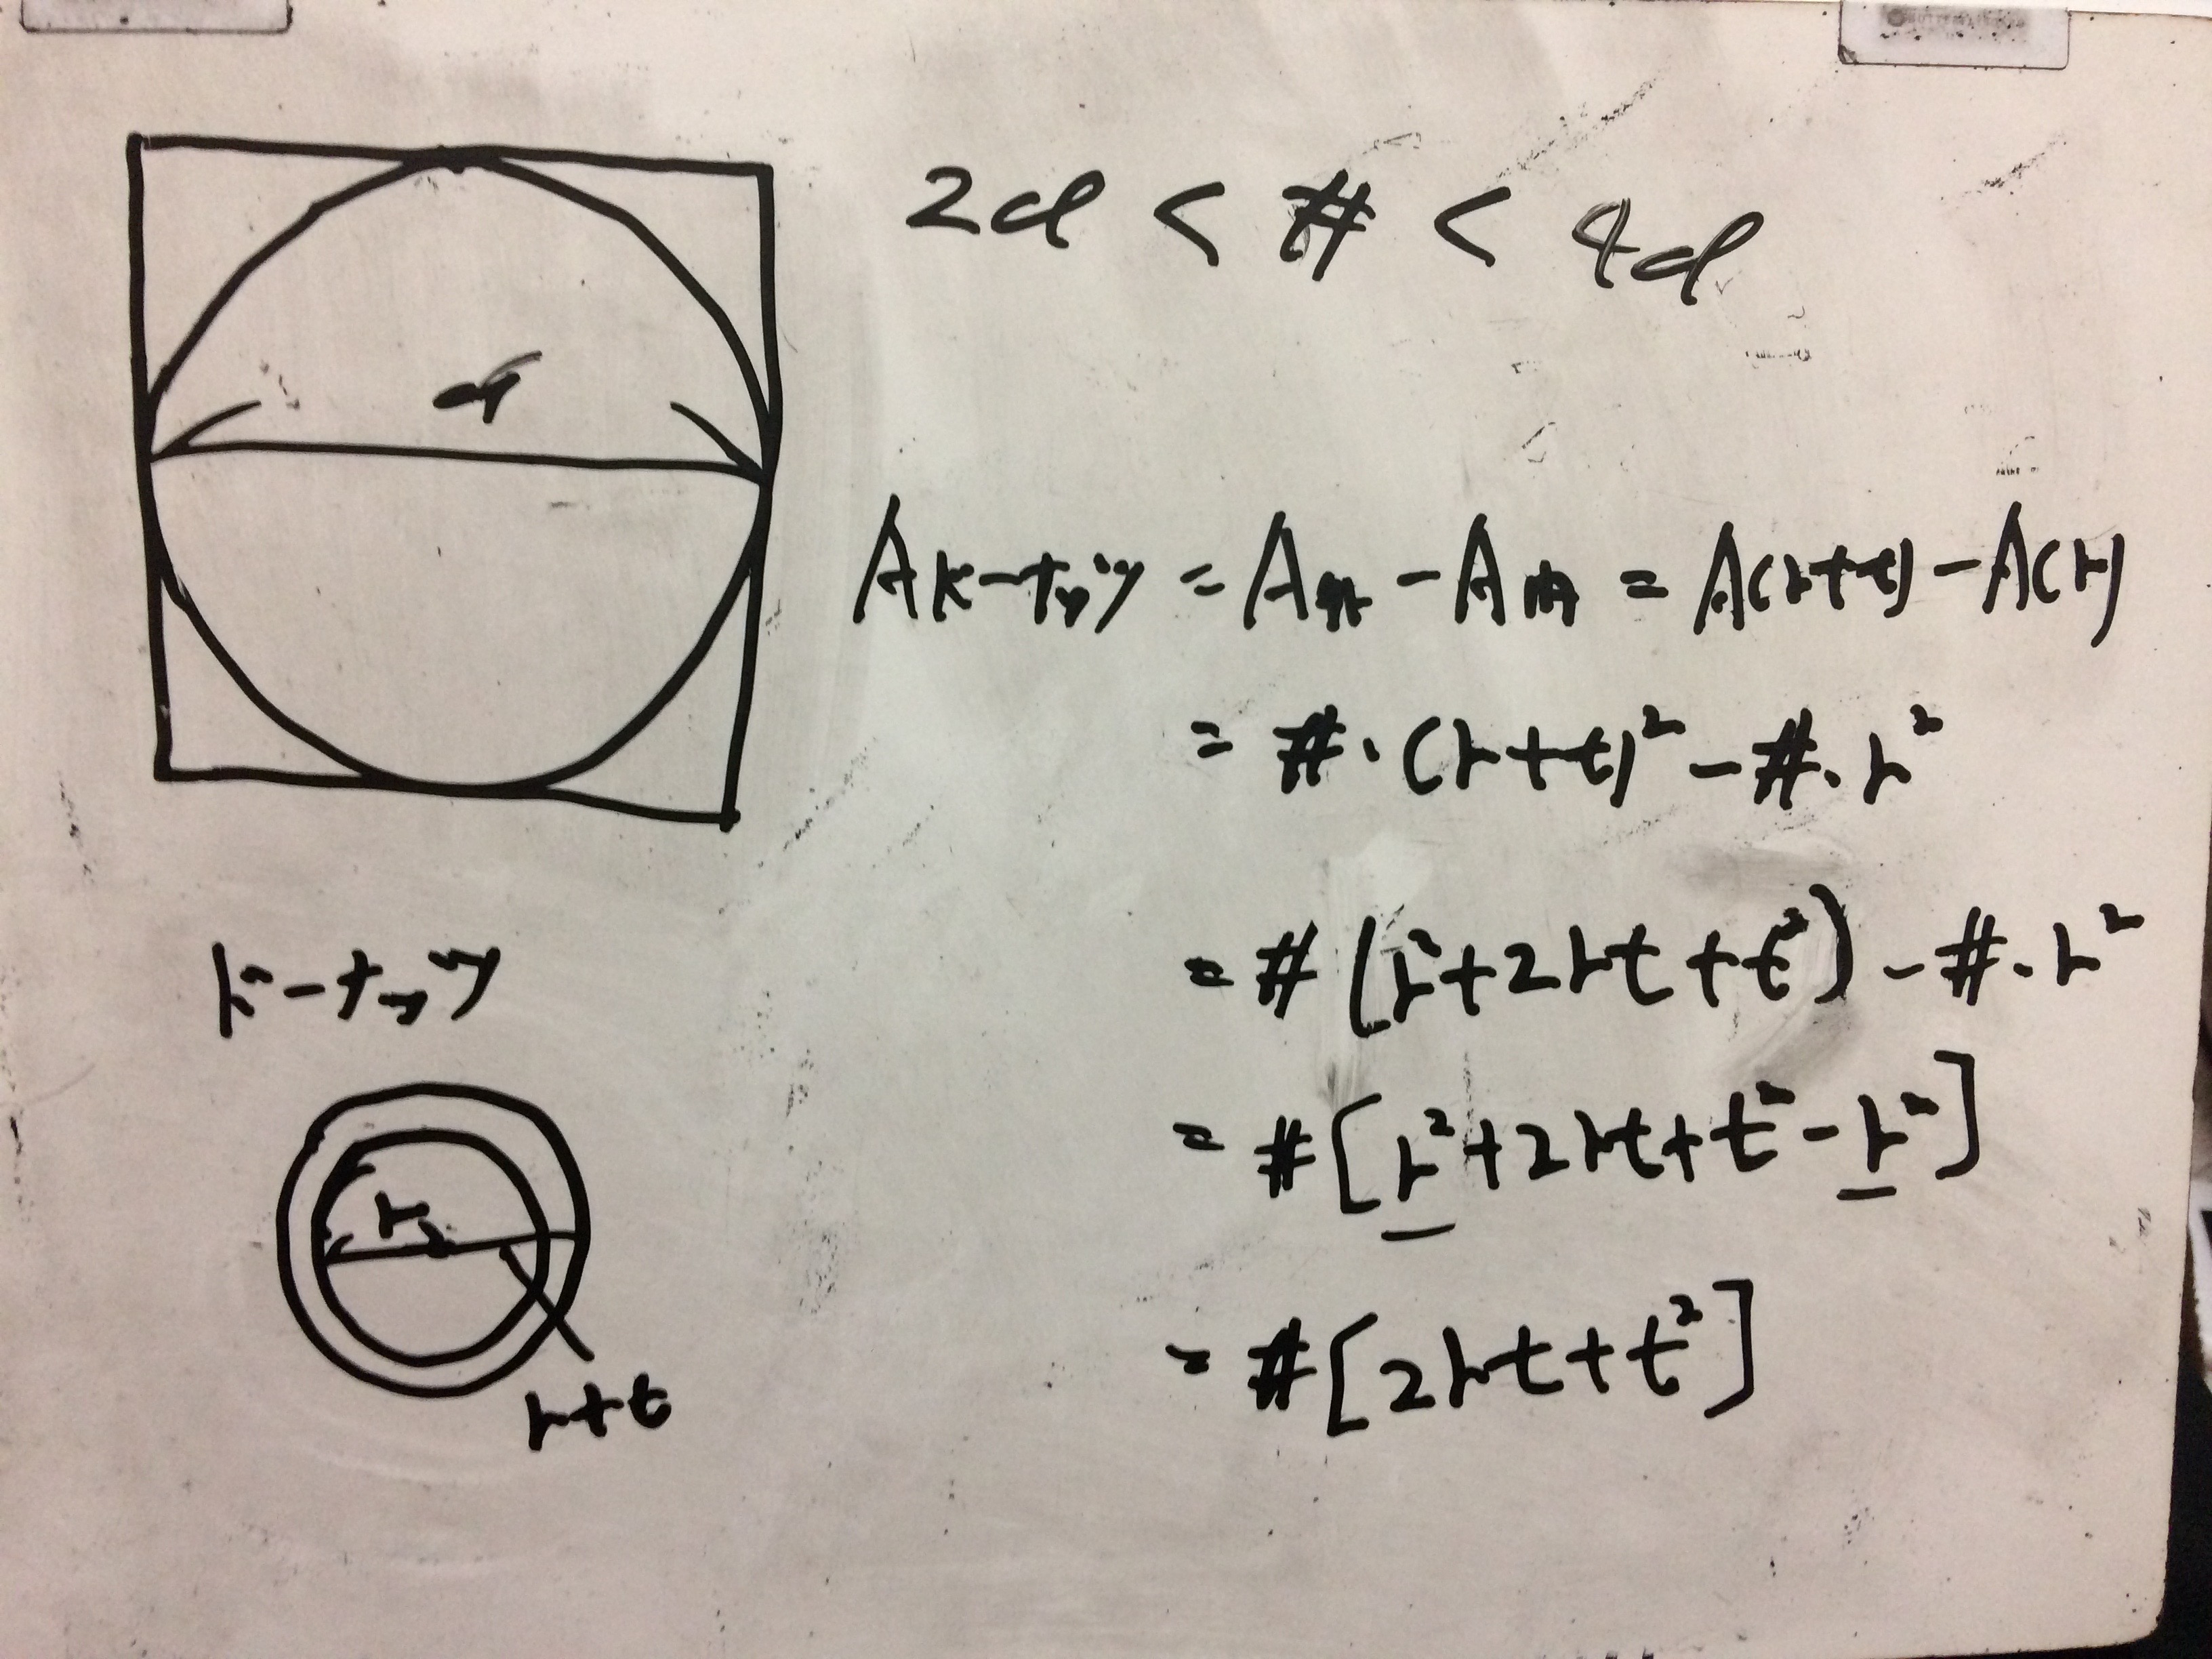 2d < # < 4d
d
Aドーナッツ = A外 - A内 = A(r+t) - A(r)
= #・(r+t)² - #・r²
= #(r²+2rt+t²) - #・r²
= #[r²+2rt+t²-r²]
= #[2rt+t²]
ドーナッツ
r
r+t